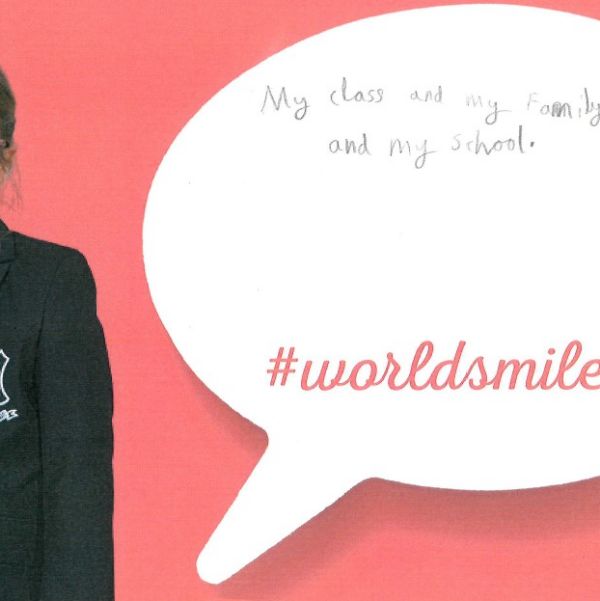 My class and my Family
and my school.
#worldsmile